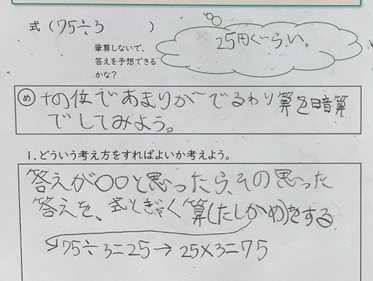 式（75÷3）
筆算しないで、
答えを予想できる
かな？
25円ぐらい。
め 十の位であまりがでるわり算を暗算
でしてみよう。
1.どういう考え方をすればよいか考えよう。
答えが〇〇と思ったら、その思った
答えを、式とぎゃく算(たしかめ)をする
75÷3=25→25×3=75